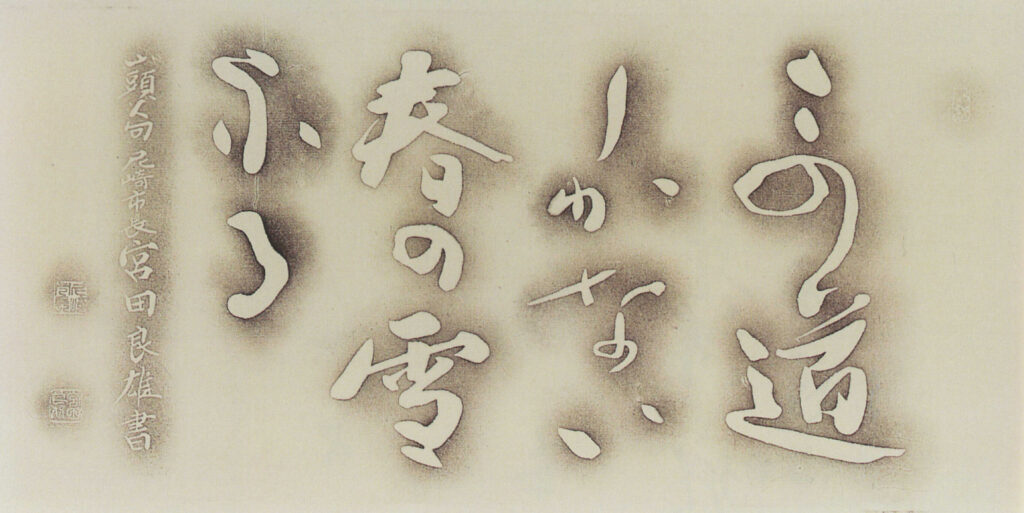 この道
しかない
春の雪
ふる
山頭火句 尼崎市長宮田良雄書